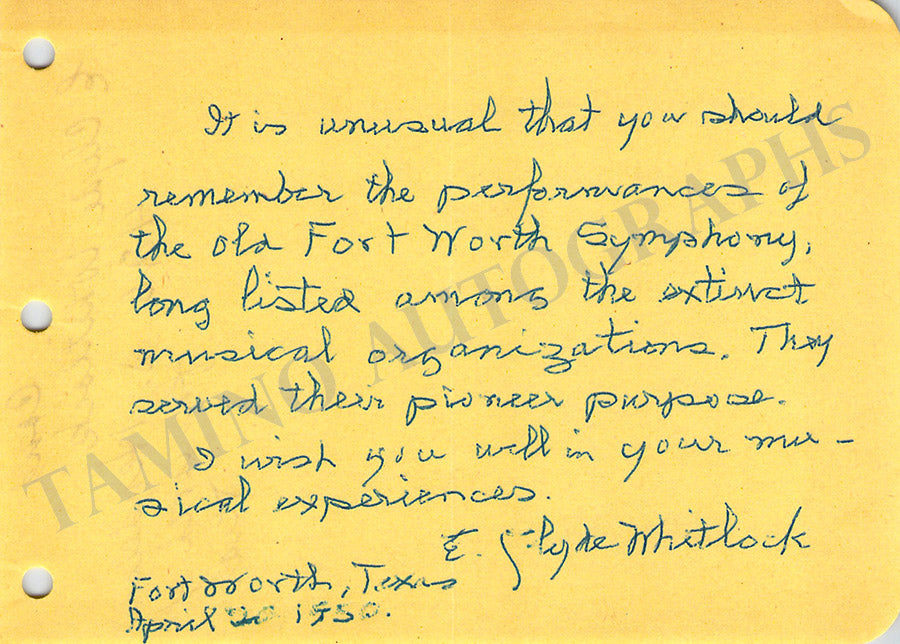 It is unusual that you should
remember the performances of
the old Fort Worth Symphony,
long listed among the extinct
musical organizations. They
served their pioneer purpose.
I wish you well in your mu-
sical experiences.
E. Clyde Whitlock
Fort Worth, Texas
April 20 1950.
TAMINO AUTOGRAPHS